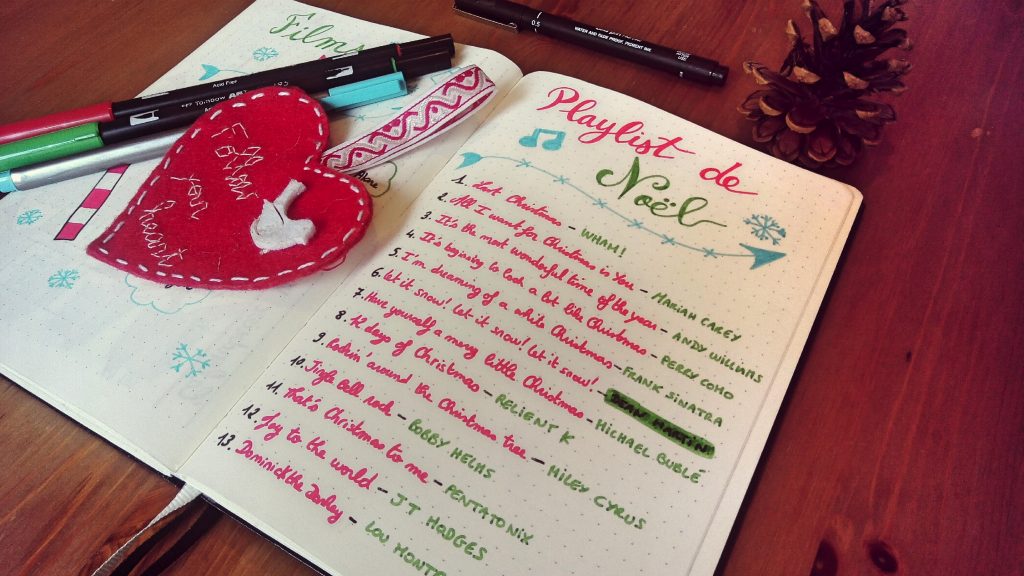 Films
Acid Free
Tombow ART
0.5
WATER AND FADE PROOF, PIGMENT INK
Follow
your
heart
Playlist de
Noël
1. Last Christmas – WHAM!
2. All I want for Christmas is You – MARIAH CAREY
3. It's the most wonderful time of the year – ANDY WILLIAMS
4. It's beginning to look a lot like Christmas – PERRY COMO
5. I'm dreaming of a white Christmas – FRANK SINATRA
6. Let it snow! Let it snow! Let it snow! – DEAN MARTIN
7. Have yourself a merry little Christmas – MICHAEL BUBLÉ
8. 12 days of Christmas – RELIENT K
9. Rockin' around the Christmas tree – MILEY CYRUS
10. Jingle bell rock – BOBBY HELMS
11. That's Christmas to me – PENTATONIX
12. Joy to the world – JT HODGES
13. Dominick the Donkey – LOU MONTE